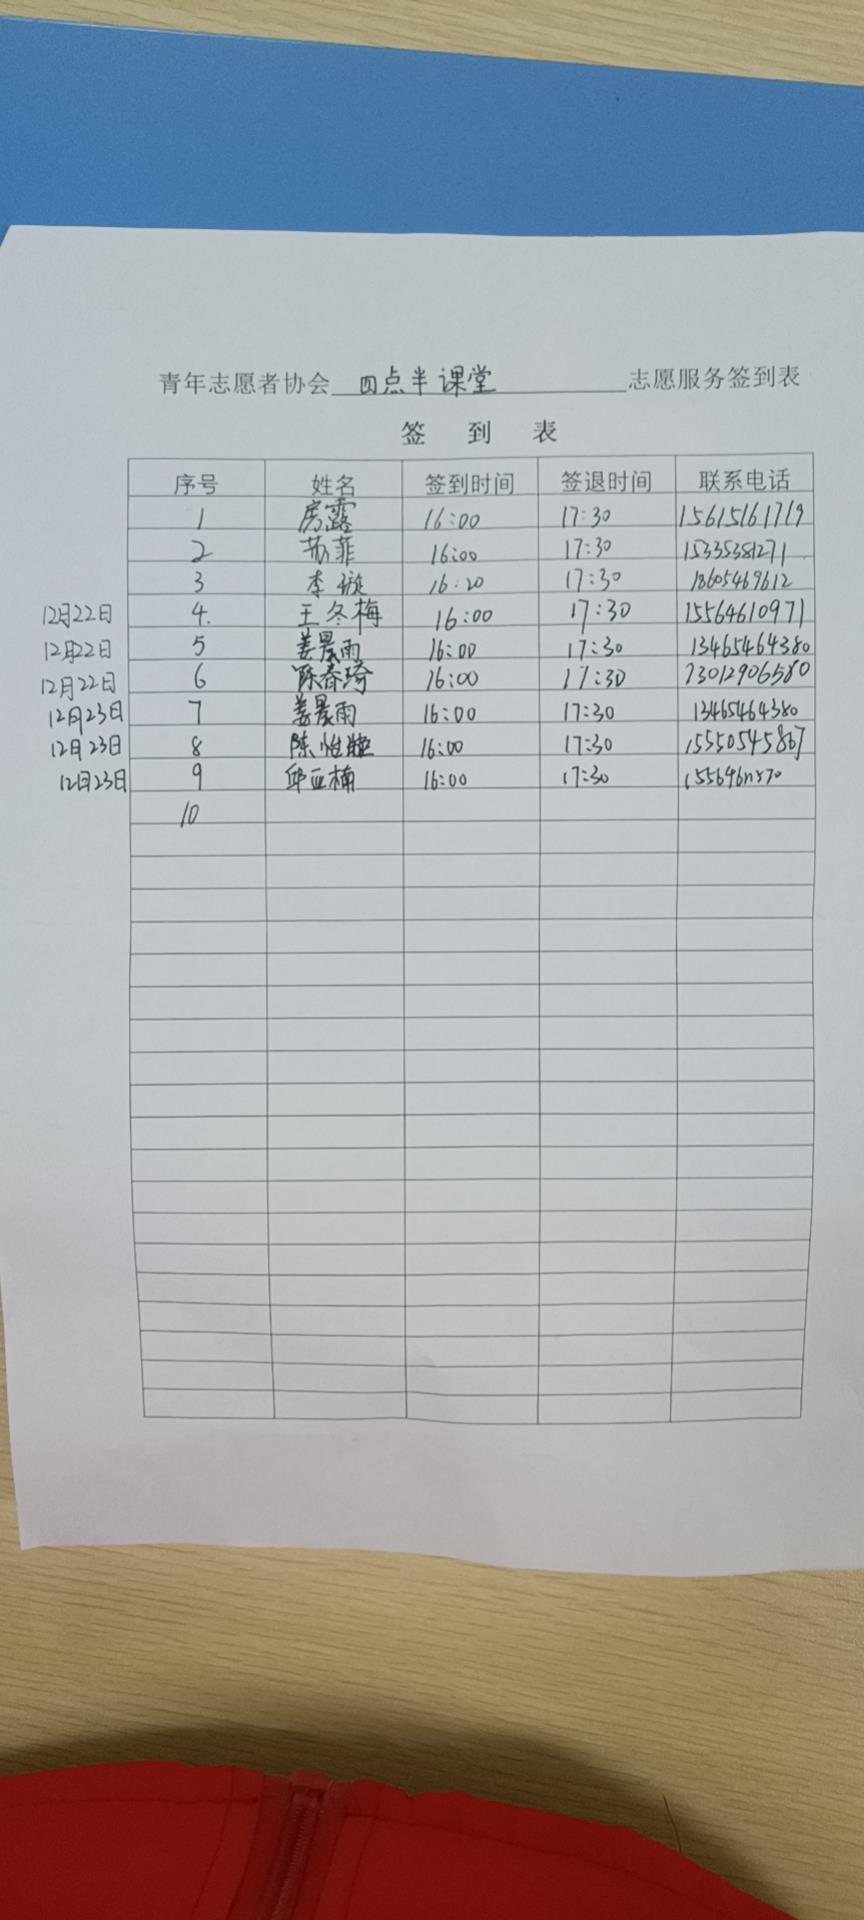 青年志愿者协会 四点半课堂 志愿服务签到表
签 到 表
序号 姓名 签到时间 签退时间 联系电话
1 房露 16:00 17:30 15615161719
2 苏菲 16:00 17:30 15335381271
3 李 16:20 17:30 18605469612
12月22日 4. 王冬梅 16:00 17:30 15564610971
12月22日 5 姜晨雨 16:00 17:30 13465464380
12月22日 6 陈春琦 16:00 17:30 73012906580
12月23日 7 姜晨雨 16:00 17:30 13465464380
12月23日 8 陈怡 16:00 17:30 15550545867
12月23日 9 邱亚楠 16:00 17:30
10